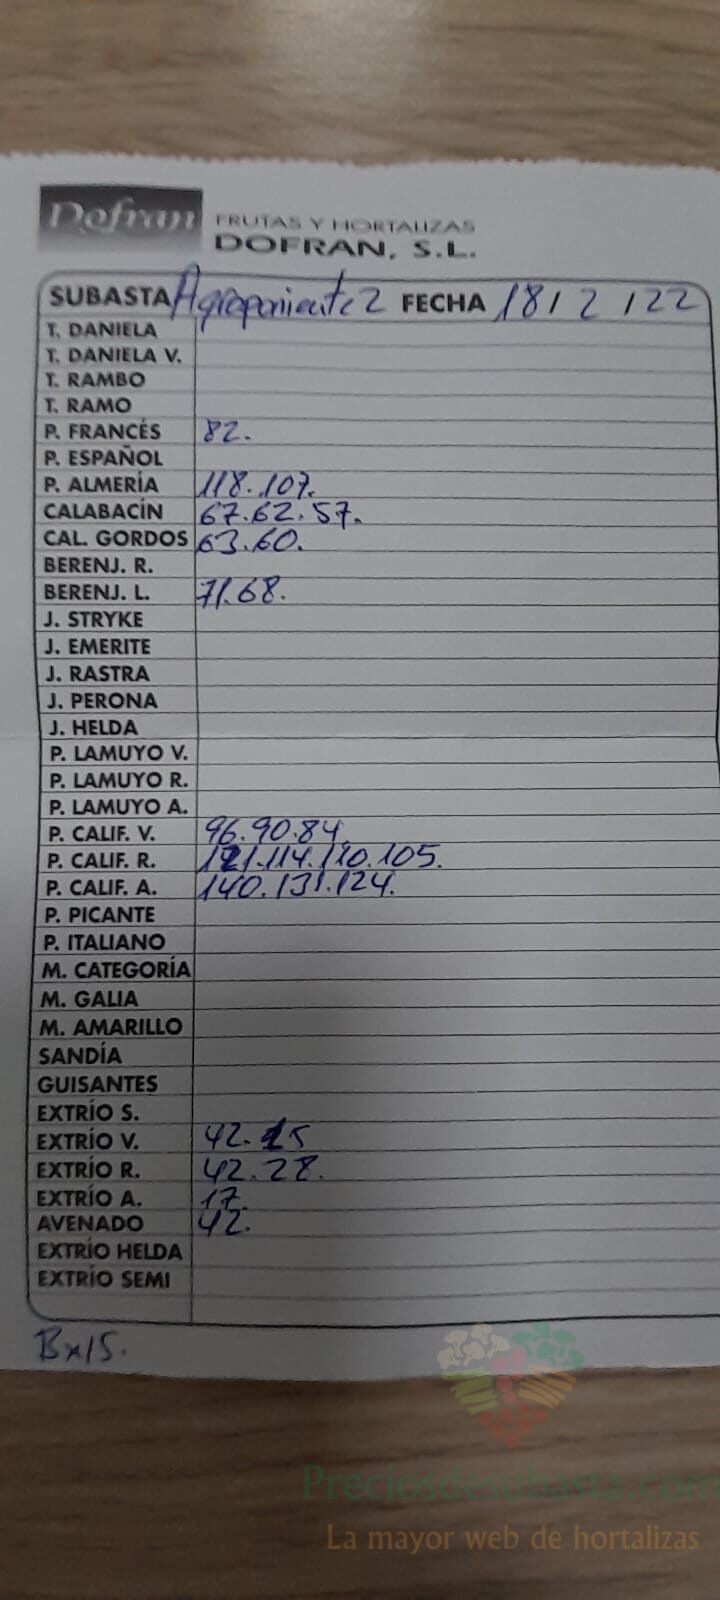 Dofran FRUTAS Y HORTALIZAS
DOFRAN, S.L.
SUBASTA Agroponiente 2 FECHA 18/2/22
T. DANIELA
T. DANIELA V.
T. RAMBO
T. RAMO
P. FRANCÉS 82.
P. ESPAÑOL
P. ALMERÍA 118.107.
CALABACÍN 67.62.57.
CAL. GORDOS 63.60.
BERENJ. R.
BERENJ. L. 71.68.
J. STRYKE
J. EMERITE
J. RASTRA
J. PERONA
J. HELDA
P. LAMUYO V.
P. LAMUYO R.
P. LAMUYO A.
P. CALIF. V. 96.90.84.
P. CALIF. R. 121.114.110.105.
P. CALIF. A. 140.131.124.
P. PICANTE
P. ITALIANO
M. CATEGORÍA
M. GALIA
M. AMARILLO
SANDÍA
GUISANTES
EXTRÍO S.
EXTRÍO V. 42.
EXTRÍO R. 42.28.
EXTRÍO A. 17.
AVENADO 42.
EXTRÍO HELDA
EXTRÍO SEMI
Preciosdesubasta.com
La mayor web de hortalizas